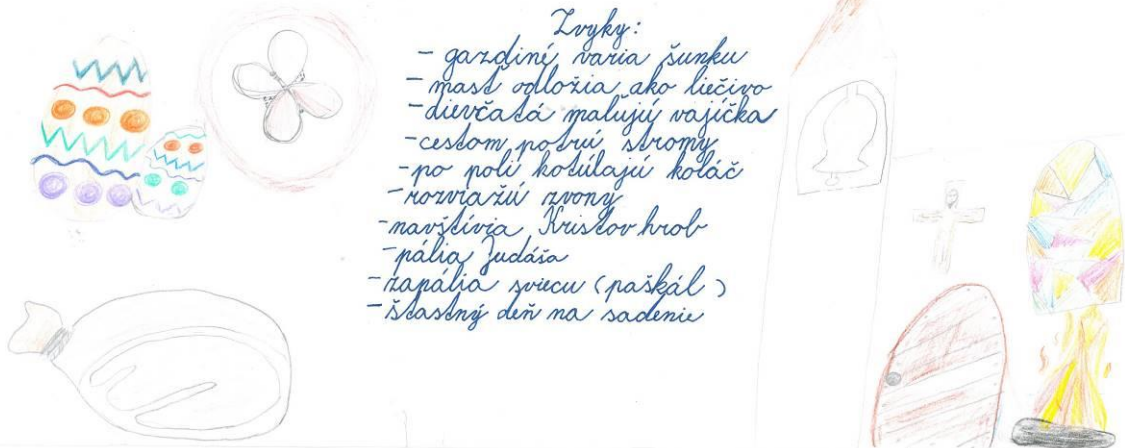 Zvyky:
- gazdiné varia šunku
- masť odložia ako liečivo
- dievčatá maľujú vajíčka
- cestom potrú stromy
- po poli kotúľajú koláč
- rozviažú zvony
- navštívia Kristov hrob
- pália Judáša
- zapália sviecu (paškál)
- šťastný deň na sadenie